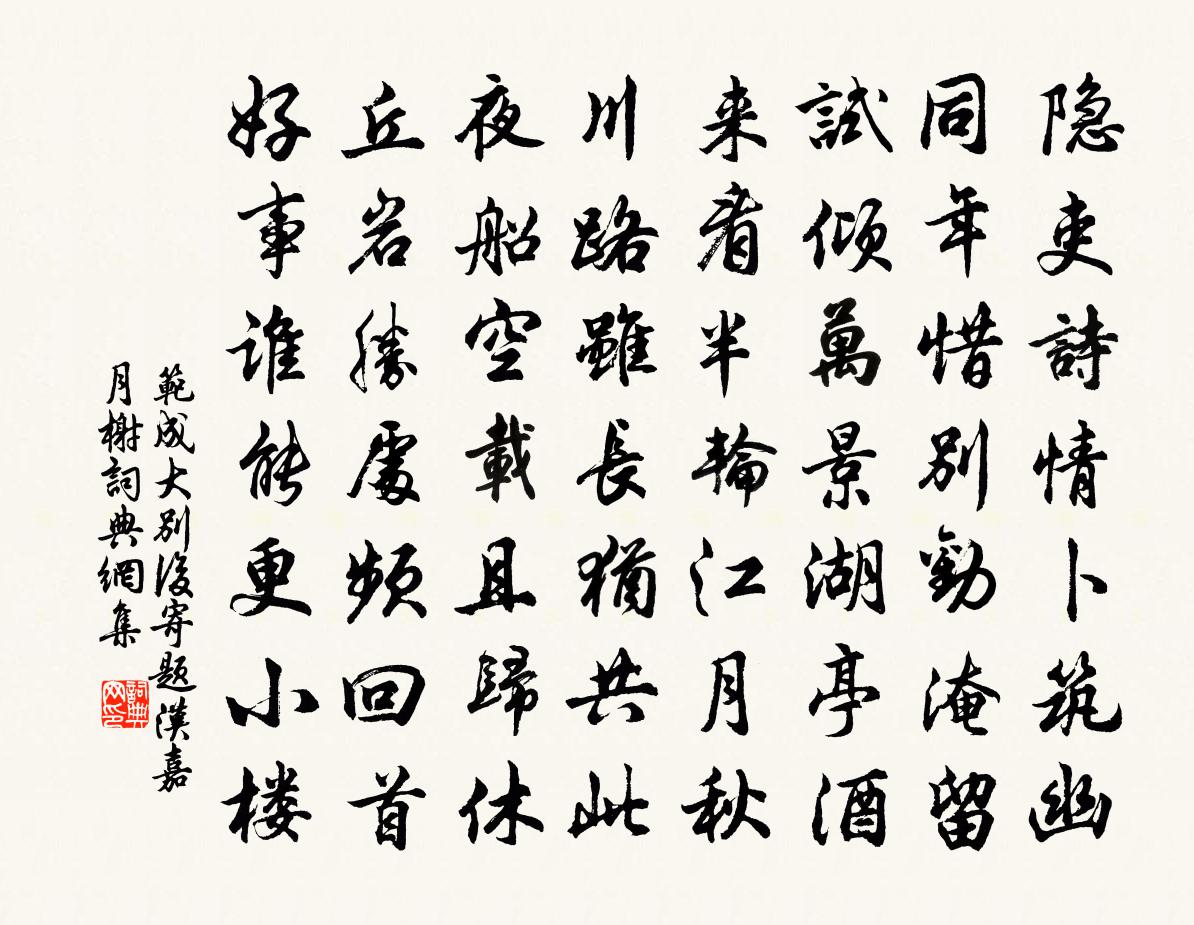 隐吏詩情卜筑幽
同年惜别勸淹留
試傾萬景湖亭酒
来看半輪江月秋
川路雖長猶共此
夜船空載且歸休
丘岩勝處頻回首
好事谁能更小楼
範成大别後寄题漢嘉
月榭詞典網集
詞典網印